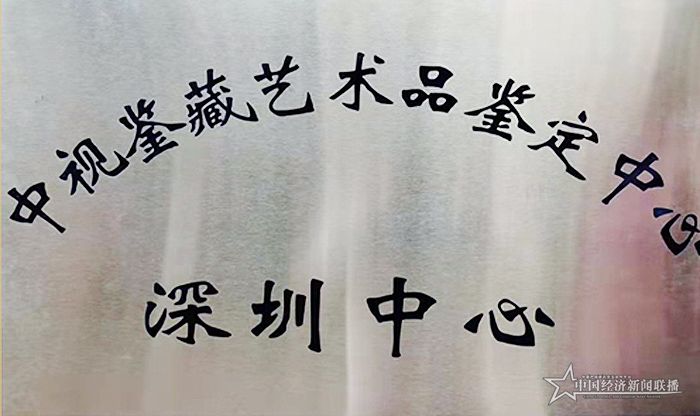 中视鉴藏艺术品鉴定中心
深圳中心
中国经济新闻联播